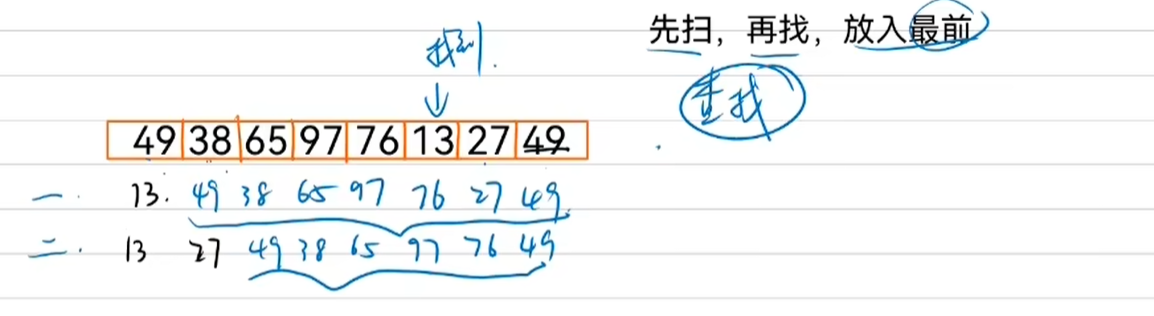 先扫，再找，放入最前
找到.
查找
↓
49 38 65 97 76 13 27 49
一. 13. 49 38 65 97 76 27 49.
二. 13 27 49 38 65 97 76 49